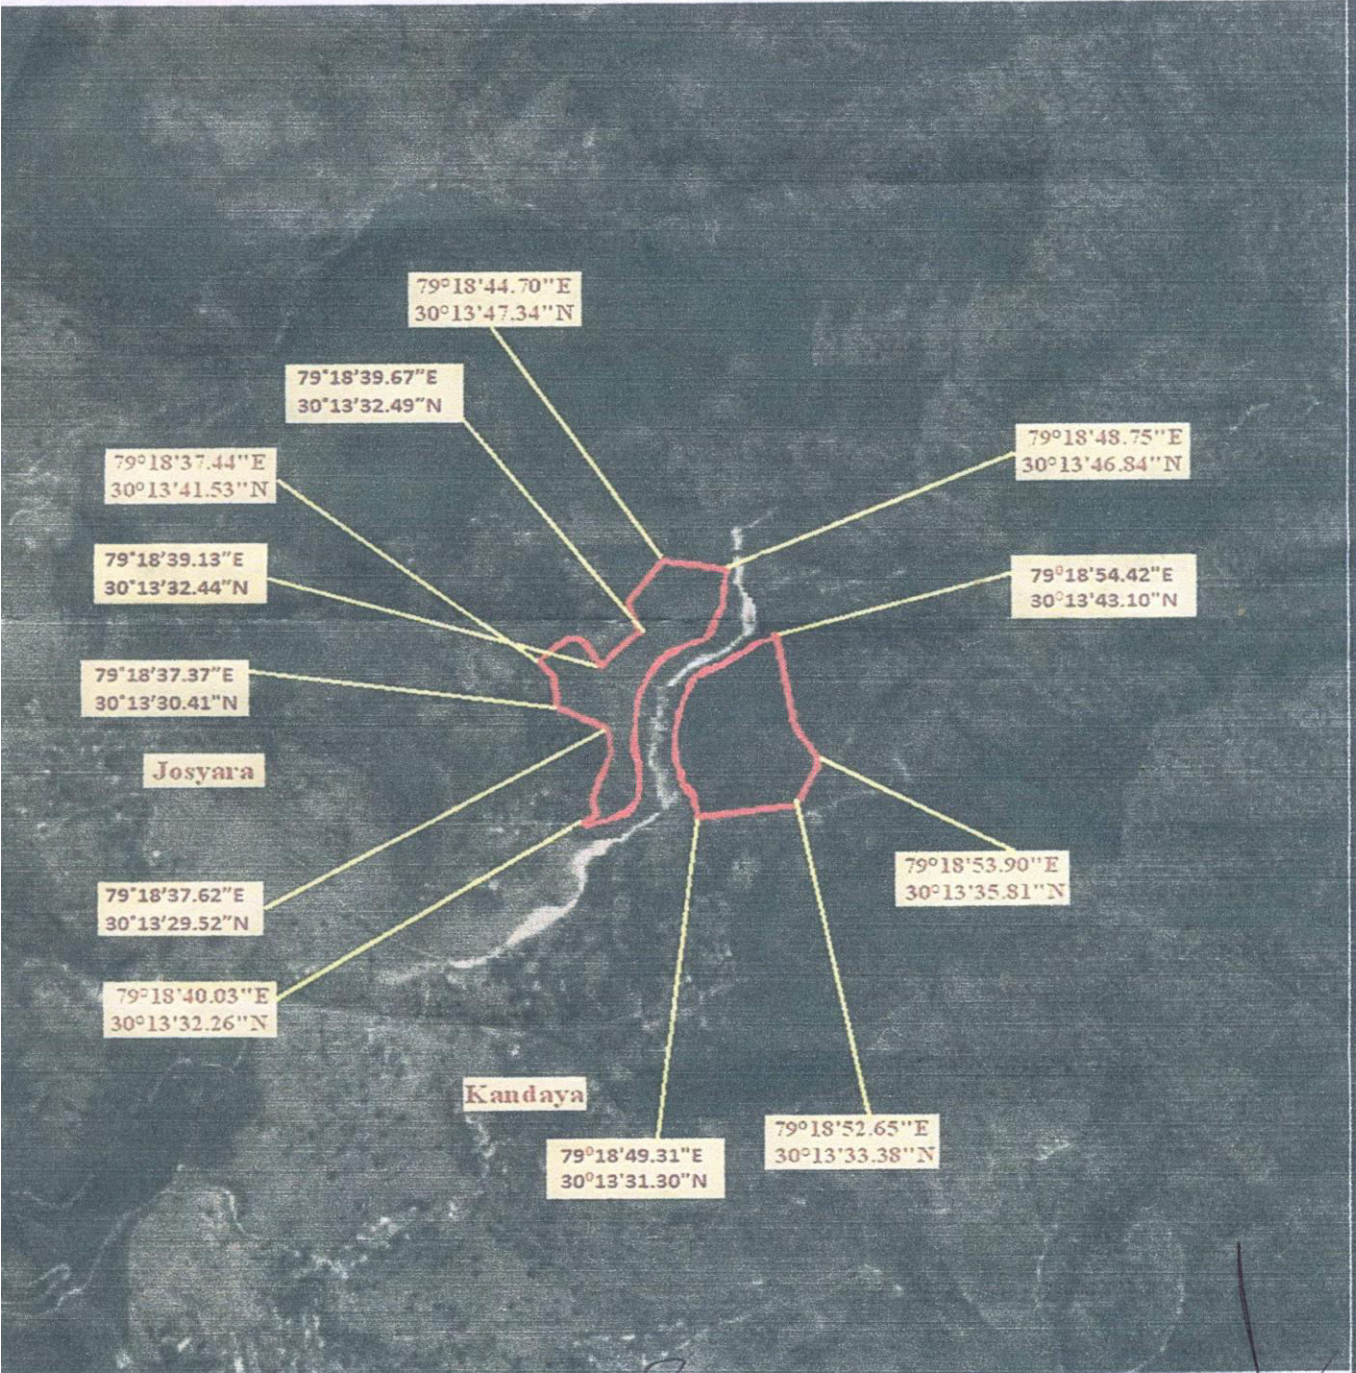 79°18'44.70"E
30°13'47.34"N
79°18'39.67"E
30°13'32.49"N
79°18'48.75"E
30°13'46.84"N
79°18'37.44"E
30°13'41.53"N
79°18'39.13"E
30°13'32.44"N
79⁰18'54.42"E
30⁰13'43.10"N
79°18'37.37"E
30°13'30.41"N
Josyara
79°18'53.90"E
30°13'35.81"N
79°18'37.62"E
30°13'29.52"N
79°18'40.03"E
30°13'32.26"N
Kandaya
79°18'52.65"E
30°13'33.38"N
79⁰18'49.31"E
30⁰13'31.30"N